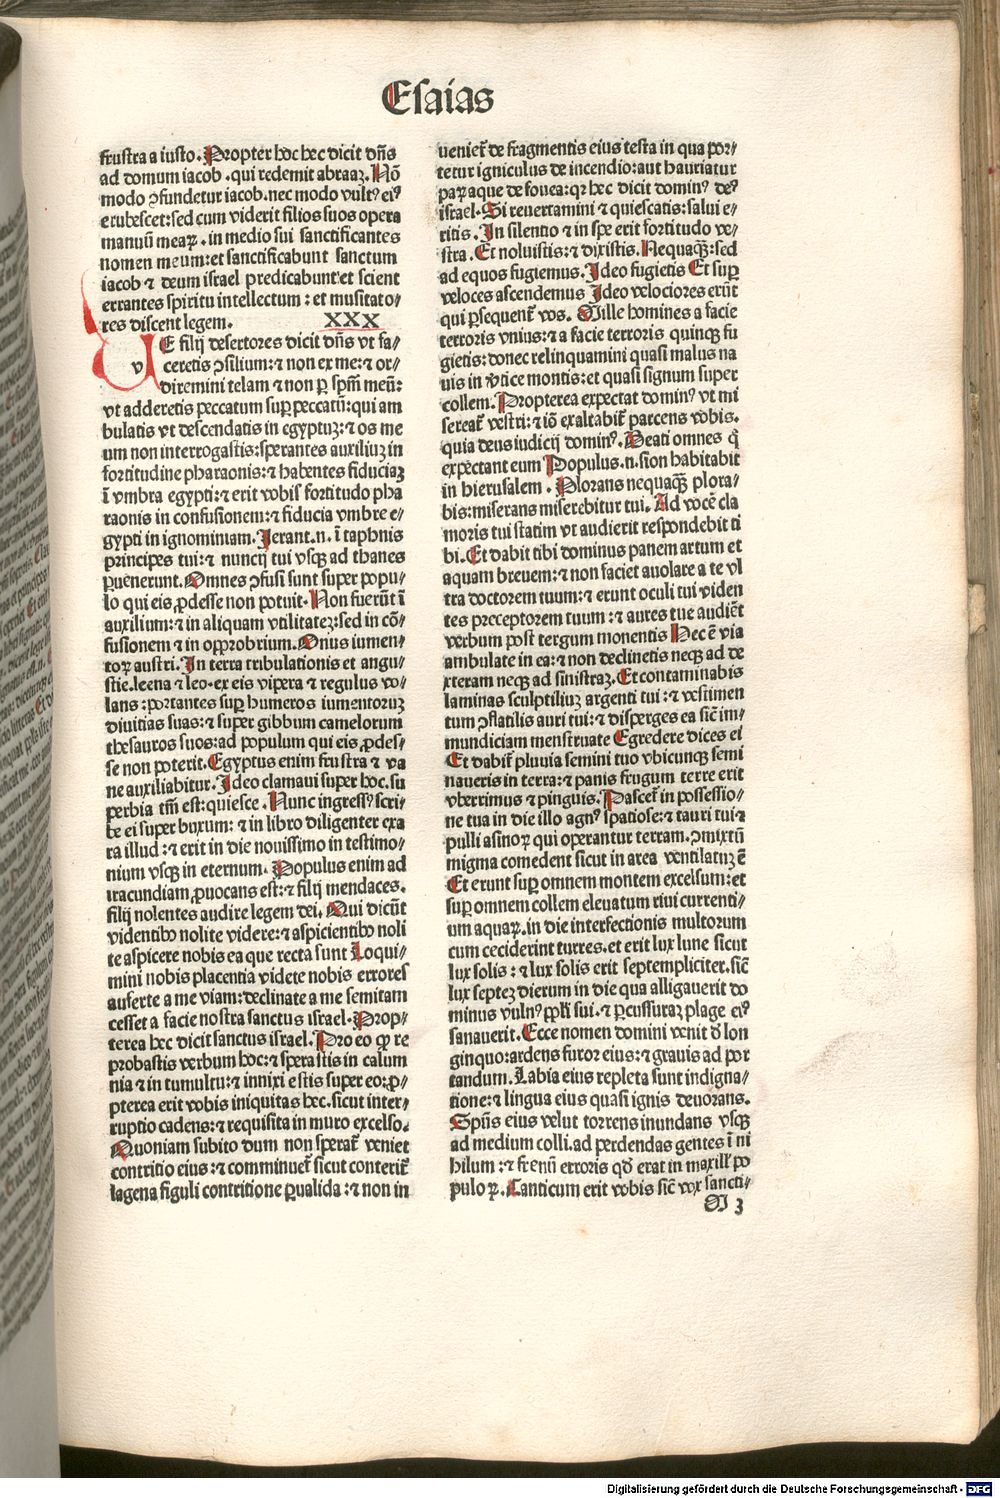 Esaias
frustra a iusto. Propter hoc hec dicit dn̄s
ad domum iacob. qui redemit abraaz. Nō
modo ꝯfundetur iacob. nec modo vultꝰ eiꝰ
erubescet: sed cum viderit filios suos opera
manuū meaꝝ. in medio sui sanctificantes
nomen meum: et sanctificabunt sanctum
iacob ⁊ deum israel predicabunt: et scient
errantes spiritu intellectum: et musitato⸗
res discent legem. XXX
VE filij desertores dicit dn̄s vt fa⸗
v ceretis ꝯsilium: ⁊ non ex me: ⁊ or⸗
diremini telam ⁊ non ꝑ spm̄ meū:
vt adderetis peccatum suꝑ peccatū: qui am
bulatis vt descendatis in egyptuz: ⁊ os me
um non interrogastis: sperantes auxiliuz in
fortitudine pharaonis: ⁊ habentes fiduciaz
ī vmbra egypti: ⁊ erit vobis fortitudo pha
raonis in confusionem: ⁊ fiducia vmbre e⸗
gypti in ignominiam. Ierant .n. ī taphnis
principes tui: ⁊ nuncij tui vsqꝫ ad thanes
ꝑuenerunt. Omnes ꝯfusi sunt super popu⸗
lo qui eis ꝓdesse non potuit. Non fuerūt ī
auxilium: ⁊ in aliquam vtilitatez: sed in cō⸗
fusionem ⁊ in opprobrium. Onus iumen⸗
toꝝ austri. In terra tribulationis et angu⸗
stie. leena ⁊ leo. ex eis vipera ⁊ regulus vo⸗
lans: portantes suꝑ humeros iumentoruz
diuitias suas: ⁊ super gibbum camelorum
thesauros suos: ad populum qui eis ꝓdes⸗
se non poterit. Egyptus enim frustra ⁊ va
ne auxiliabitur. Ideo clamaui super hoc. su
perbia tm̄ est: quiesce. Nunc ingressꝰ scri⸗
be ei super buxum: ⁊ in libro diligenter exa
ra illud: ⁊ erit in die nouissimo in testimo⸗
nium vsqꝫ in eternum. Populus enim ad
iracundiam ꝓuocans est: ⁊ filij mendaces.
filij nolentes audire legem dei. Qui dicūt
videntibꝰ nolite videre: ⁊ aspicientibꝰ noli
te aspicere nobis ea que recta sunt Loqui⸗
mini nobis placentia videte nobis errores
auferte a me viam: declinate a me semitam
cesset a facie nostra sanctus israel. Prop⸗
terea hec dicit sanctus israel. Pro eo ꝙ re
probastis verbum hoc: ⁊ sperastis in calum
nia ⁊ in tumultu: ⁊ innixi estis super eo: ꝓ⸗
pterea erit vobis iniquitas hec. sicut inter⸗
ruptio cadens: ⁊ requisita in muro excelso.
Quoniam subito dum non sperat᷑ veniet
contritio eius: ⁊ comminuet᷑ sicut conterit᷑
lagena figuli contritione ꝑualida: ⁊ non in
ueniet᷑ de fragmentis eius testa in qua por⸗
tetur igniculus de incendio: aut hauriatur
paꝝ aque de fouea: qꝛ hec dicit dominꝰ deꝰ
israel. Si reuertamini ⁊ quiescatis: salui e⸗
ritis. In silentio ⁊ in spe erit fortitudo ve⸗
stra. Et noluistis: ⁊ dixistis. Nequaqꝫ: sed
ad equos fugiemus. Ideo fugietis Et suꝑ
veloces ascendemus Ideo velociores erūt
qui ꝑsequent᷑ vos. Mille homines a facie
terroris vnius: ⁊ a facie terroris quinqꝫ fu
gietis: donec relinquamini quasi malus na
uis in v̄tice montis: et quasi signum super
collem. Propterea expectat dominꝰ vt mi
sereat᷑ vestri: ⁊ iō exaltabit᷑ parcens vobis.
quia deus iudicij dominꝰ. Beati omnes q̄
expectant eum Populus .n. sion habitabit
in hierusalem. Plorans nequaqꝫ plora⸗
bis: miserans miserebitur tui. Ad vocē cla
moris tui statim vt audierit respondebit ti
bi. Et dabit tibi dominus panem artum et
aquam breuem: ⁊ non faciet auolare a te vl
tra doctorem tuum: ⁊ erunt oculi tui viden
tes preceptorem tuum: ⁊ aures tue audiēt
verbum post tergum monentis Hec ē via
ambulate in ea: ⁊ non declinetis neqꝫ ad de
xteram neqꝫ ad sinistraz. Et contaminabis
laminas sculptiliuz argenti tui: ⁊ vestimen
tum ꝯflatilis auri tui: ⁊ disperges ea sic̄ im⸗
mundiciam menstruate Egredere dices ei
Et dabit᷑ pluuia semini tuo vbicunqꝫ semi
naueris in terra: ⁊ panis frugum terre erit
vberrimus ⁊ pinguis. Pascet᷑ in possessio⸗
ne tua in die illo agnꝰ spatiose: ⁊ tauri tui ⁊
pulli asinoꝝ qui operantur terram. ꝯmixtū
migma comedent sicut in area ventilatuz ē
Et erunt suꝑ omnem montem excelsum: et
suꝑ omnem collem eleuatum riui currenti⸗
um aquaꝝ. in die interfectionis multorum
cum ceciderint turres. et erit lux lune sicut
lux solis: ⁊ lux solis erit septempliciter. sic̄
lux septez dierum in die qua alligauerit do
minus vulnꝰ ppl̄i sui. ⁊ ꝑcussuraz plage eiꝰ
sanauerit. Ecce nomen domini venit d̄ lon
ginquo: ardens furor eius: ⁊ grauis ad por
tandum. Labia eius repleta sunt indigna⸗
tione: ⁊ lingua eius quasi ignis deuorans.
Spūs eius velut torrens inundans vsqꝫ
ad medium colli. ad perdendas gentes ī ni
hilum: ⁊ frenū erroris qd̄ erat in maxill᷑ po
puloꝝ. Canticum erit vobis sic̄ vox sancti⸗
M 3
Digitalisierung gefördert durch die Deutsche Forschungsgemeinschaft - DFG